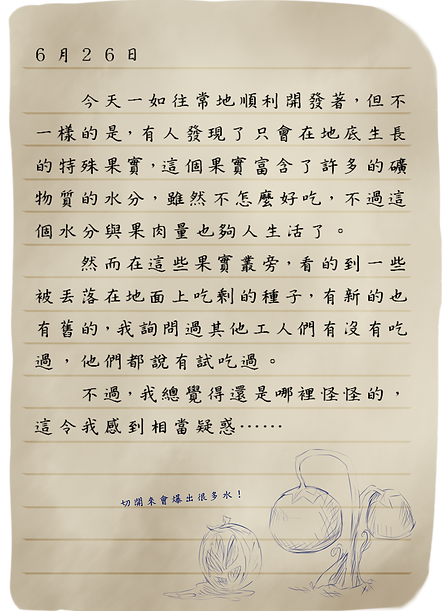 6月26日
今天一如往常地順利開發著，但不
一樣的是，有人發現了只會在地底生長
的特殊果實，這個果實富含了許多的礦
物質的水分，雖然不怎麼好吃，不過這
個水分與果肉量也夠人生活了。
然而在這些果實叢旁，看的到一些
被丟落在地面上吃剩的種子，有新的也
有舊的，我詢問過其他工人們有沒有吃
過，他們都說有試吃過。
不過，我總覺得還是哪裡怪怪的，
這令我感到相當疑惑⋯⋯
切開來會爆出很多水！